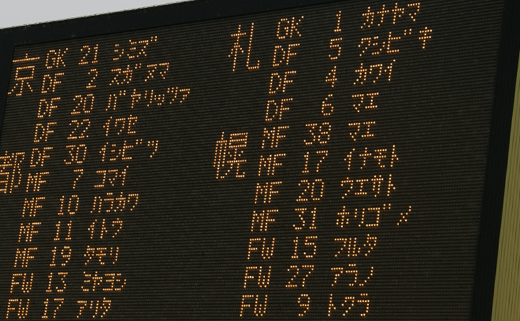 京都
GK 21 シミズ
DF 2 スガヌマ
DF 20 バヤリッツァ
DF 22 イワセ
DF 30 イシビツ
MF 7 コマイ
MF 10 ハラカワ
MF 11 イトウ
MF 19 タモリ
FW 13 ミヤヨシ
FW 17 アリタ
札幌
GK 1 カナヤマ
DF 5 クシビキ
DF 4 カワイ
DF 6 マエ
MF 38 マエ
MF 17 イナモト
MF 20 ウエサト
MF 31 ホリゴメ
FW 15 フルタ
FW 27 アラノ
FW 9 トクラ